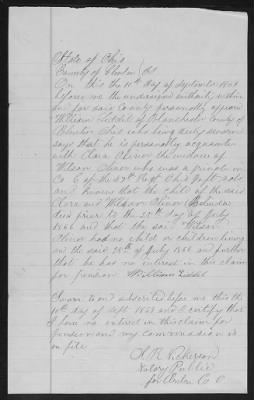 State of Ohio
County of Clinton } SS.
On this the 10th day of September 1868
before me the undersigned authority within
and for said County personally appear
William Liddel of Blanchester County of
Clinton Ohio who being duly sworn
says that he is personally acquainted
with Clara Oliver the widow of
Wilson Oliver who was a private in
Co. C of the 47th Regt Ohio
and knows that the child of the said
Clara and Wilson Oliver
died prior to the 25th day of July
1866 and that the said Wilson
Oliver had no child or children living
on the said 25th of July 1866 and further
that he has no interest in this claim
for pension William Liddel
Sworn to and subscribed before me this the
10th day of Sept 1868 and I certify that
I have no interest in this claim for
pension and my commission is
on file
Notary Public
for Clinton Co O